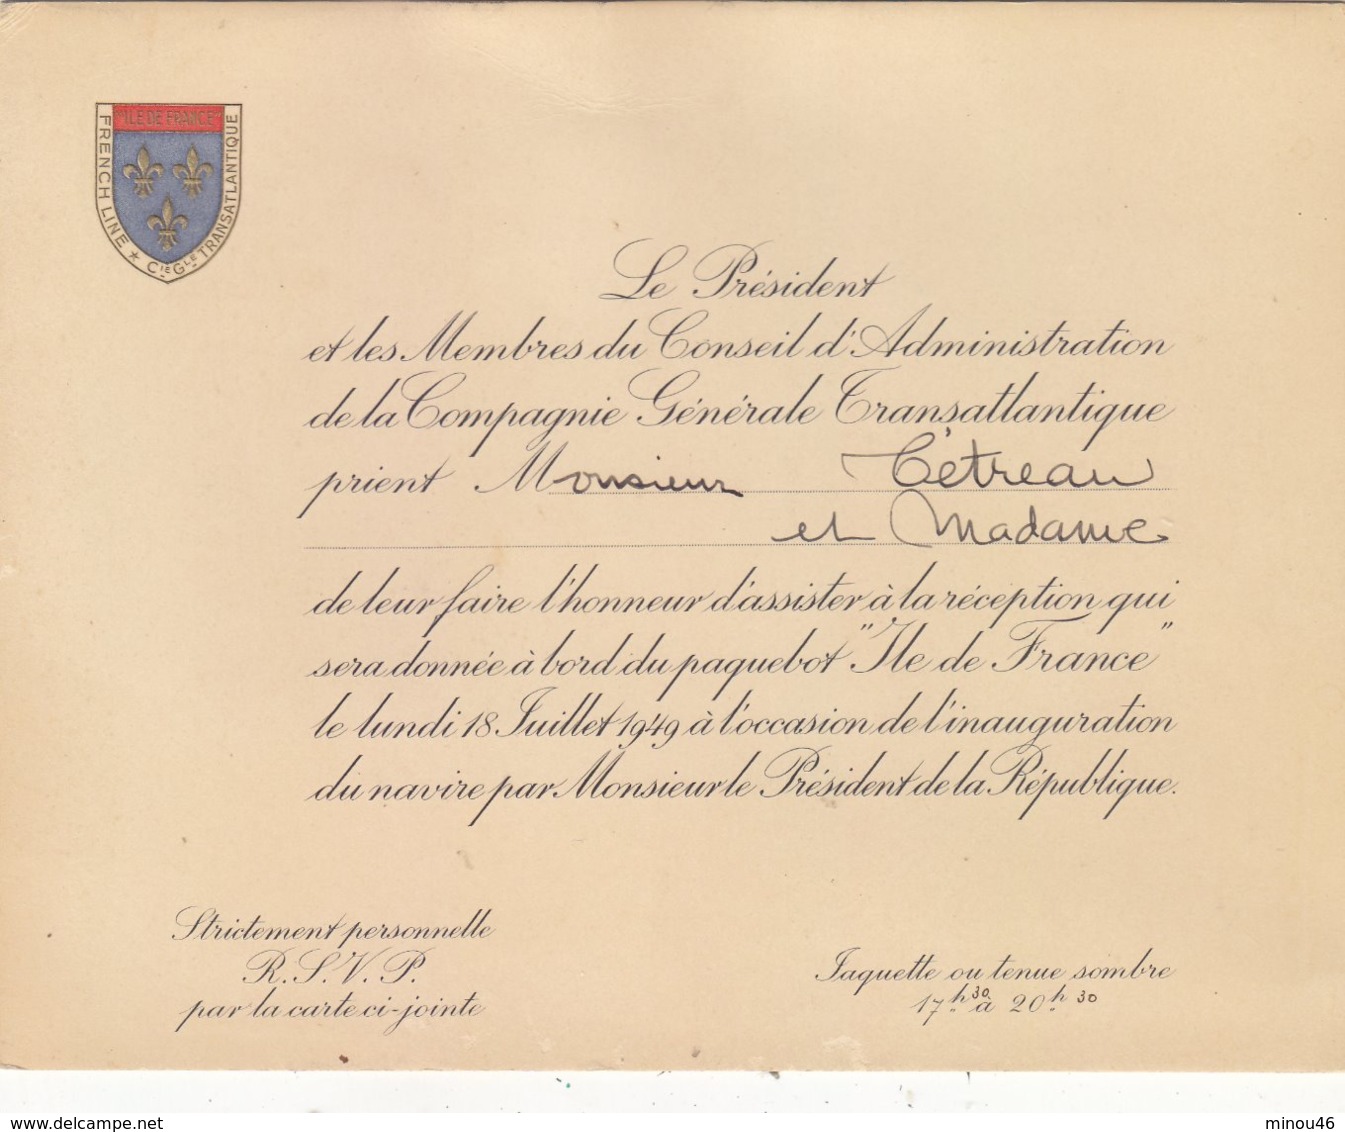 "ILE DE FRANCE"
FRENCH LINE ★ Cie Gle TRANSATLANTIQUE
Le Président
et les Membres du Conseil d'Administration
de la Compagnie Générale Transatlantique
prient Monsieur Tétreau
et Madame
de leur faire l'honneur d'assister à la réception qui
sera donnée à bord du paquebot "Ile de France"
le lundi 18 Juillet 1949 à l'occasion de l'inauguration
du navire par Monsieur le Président de la République.
Strictement personnelle
R.S.V.P.
par la carte ci-jointe
Jaquette ou tenue sombre
17h.30 à 20h.30
www.delcampe.net
minou46